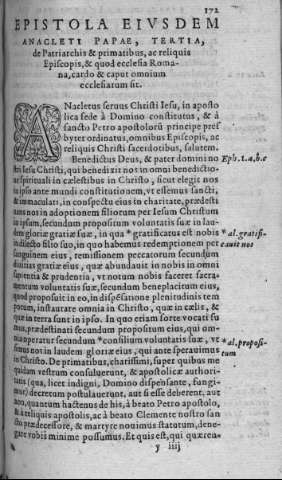 172
EPISTOLA EIVSDEM
ANACLETI PAPAE, TERTIA,
de Patriarchis & primatibus, ac reliquis
Episcopis, & quod ecclesia Roma-
na, cardo & caput omnium
ecclesiarum sit.
ANacletus seruus Christi Iesu, in aposto
lica sede à Domino constitutus, & à
sancto Petro apostolorũ principe pres
byter ordinatus, omnibus Episcopis, ac
reliquis Christi sacerdotibus, salutem.
Benedictus Deus, & pater domini no Eph. 1. a, b, c
stri Iesu Christi, qui benedixit nos in omni benedictio-
ne spirituali in cælestibus in Christo, sicut elegit nos
in ipso ante mundi constitutionem, vt essemus sancti,
& immaculati, in conspectu eius in charitate, prædesti
nans nos in adoptionem filiorum per Iesum Christum
in ipsum, secundum propositum voluntatis suæ in lau-
dem gloriæ gratiæ suæ, in qua * gratificatus est nobis * al. gratifi-
in dilecto filio suo, in quo habemus redemptionem per cauit nos
sanguinem eius, remissionem peccatorum secundum
diuitias gratiæ eius, quæ abundauit in nobis in omni
sapientia & prudentia, vt notum nobis faceret sacra-
mentum voluntatis suæ, secundum beneplacitum eius,
quod proposuit in eo, in dispẽsatione plenitudinis tem
porum, instaurare omnia in Christo, quæ in cælis, &
quæ in terra sunt in ipso. In quo etiam sorte vocati su
mus, prædestinati secundum propositum eius, qui om-
nia operatur secundum * consilium voluntatis suæ, vt * al. proposi-
simus nos in laudem gloriæ eius, qui ante sperauimus tum
in Christo. De primatibus, charissimi, super quibus me
quidam vestrum consuluerunt, & apostolicæ authori-
tatis (qua, licet indigni, Domino dispensante, fungi-
mur) decretum postulauerunt, aut si esse deberent, aut
non, quantum hactenus de his, à beato Petro apostolo,
& à reliquis apostolis, ac à beato Clemente nostro san
cto prædecessore, & martyre nouimus statutum, dene-
gare vobis minime possumus. Et quis est, qui quæren-
y iiij